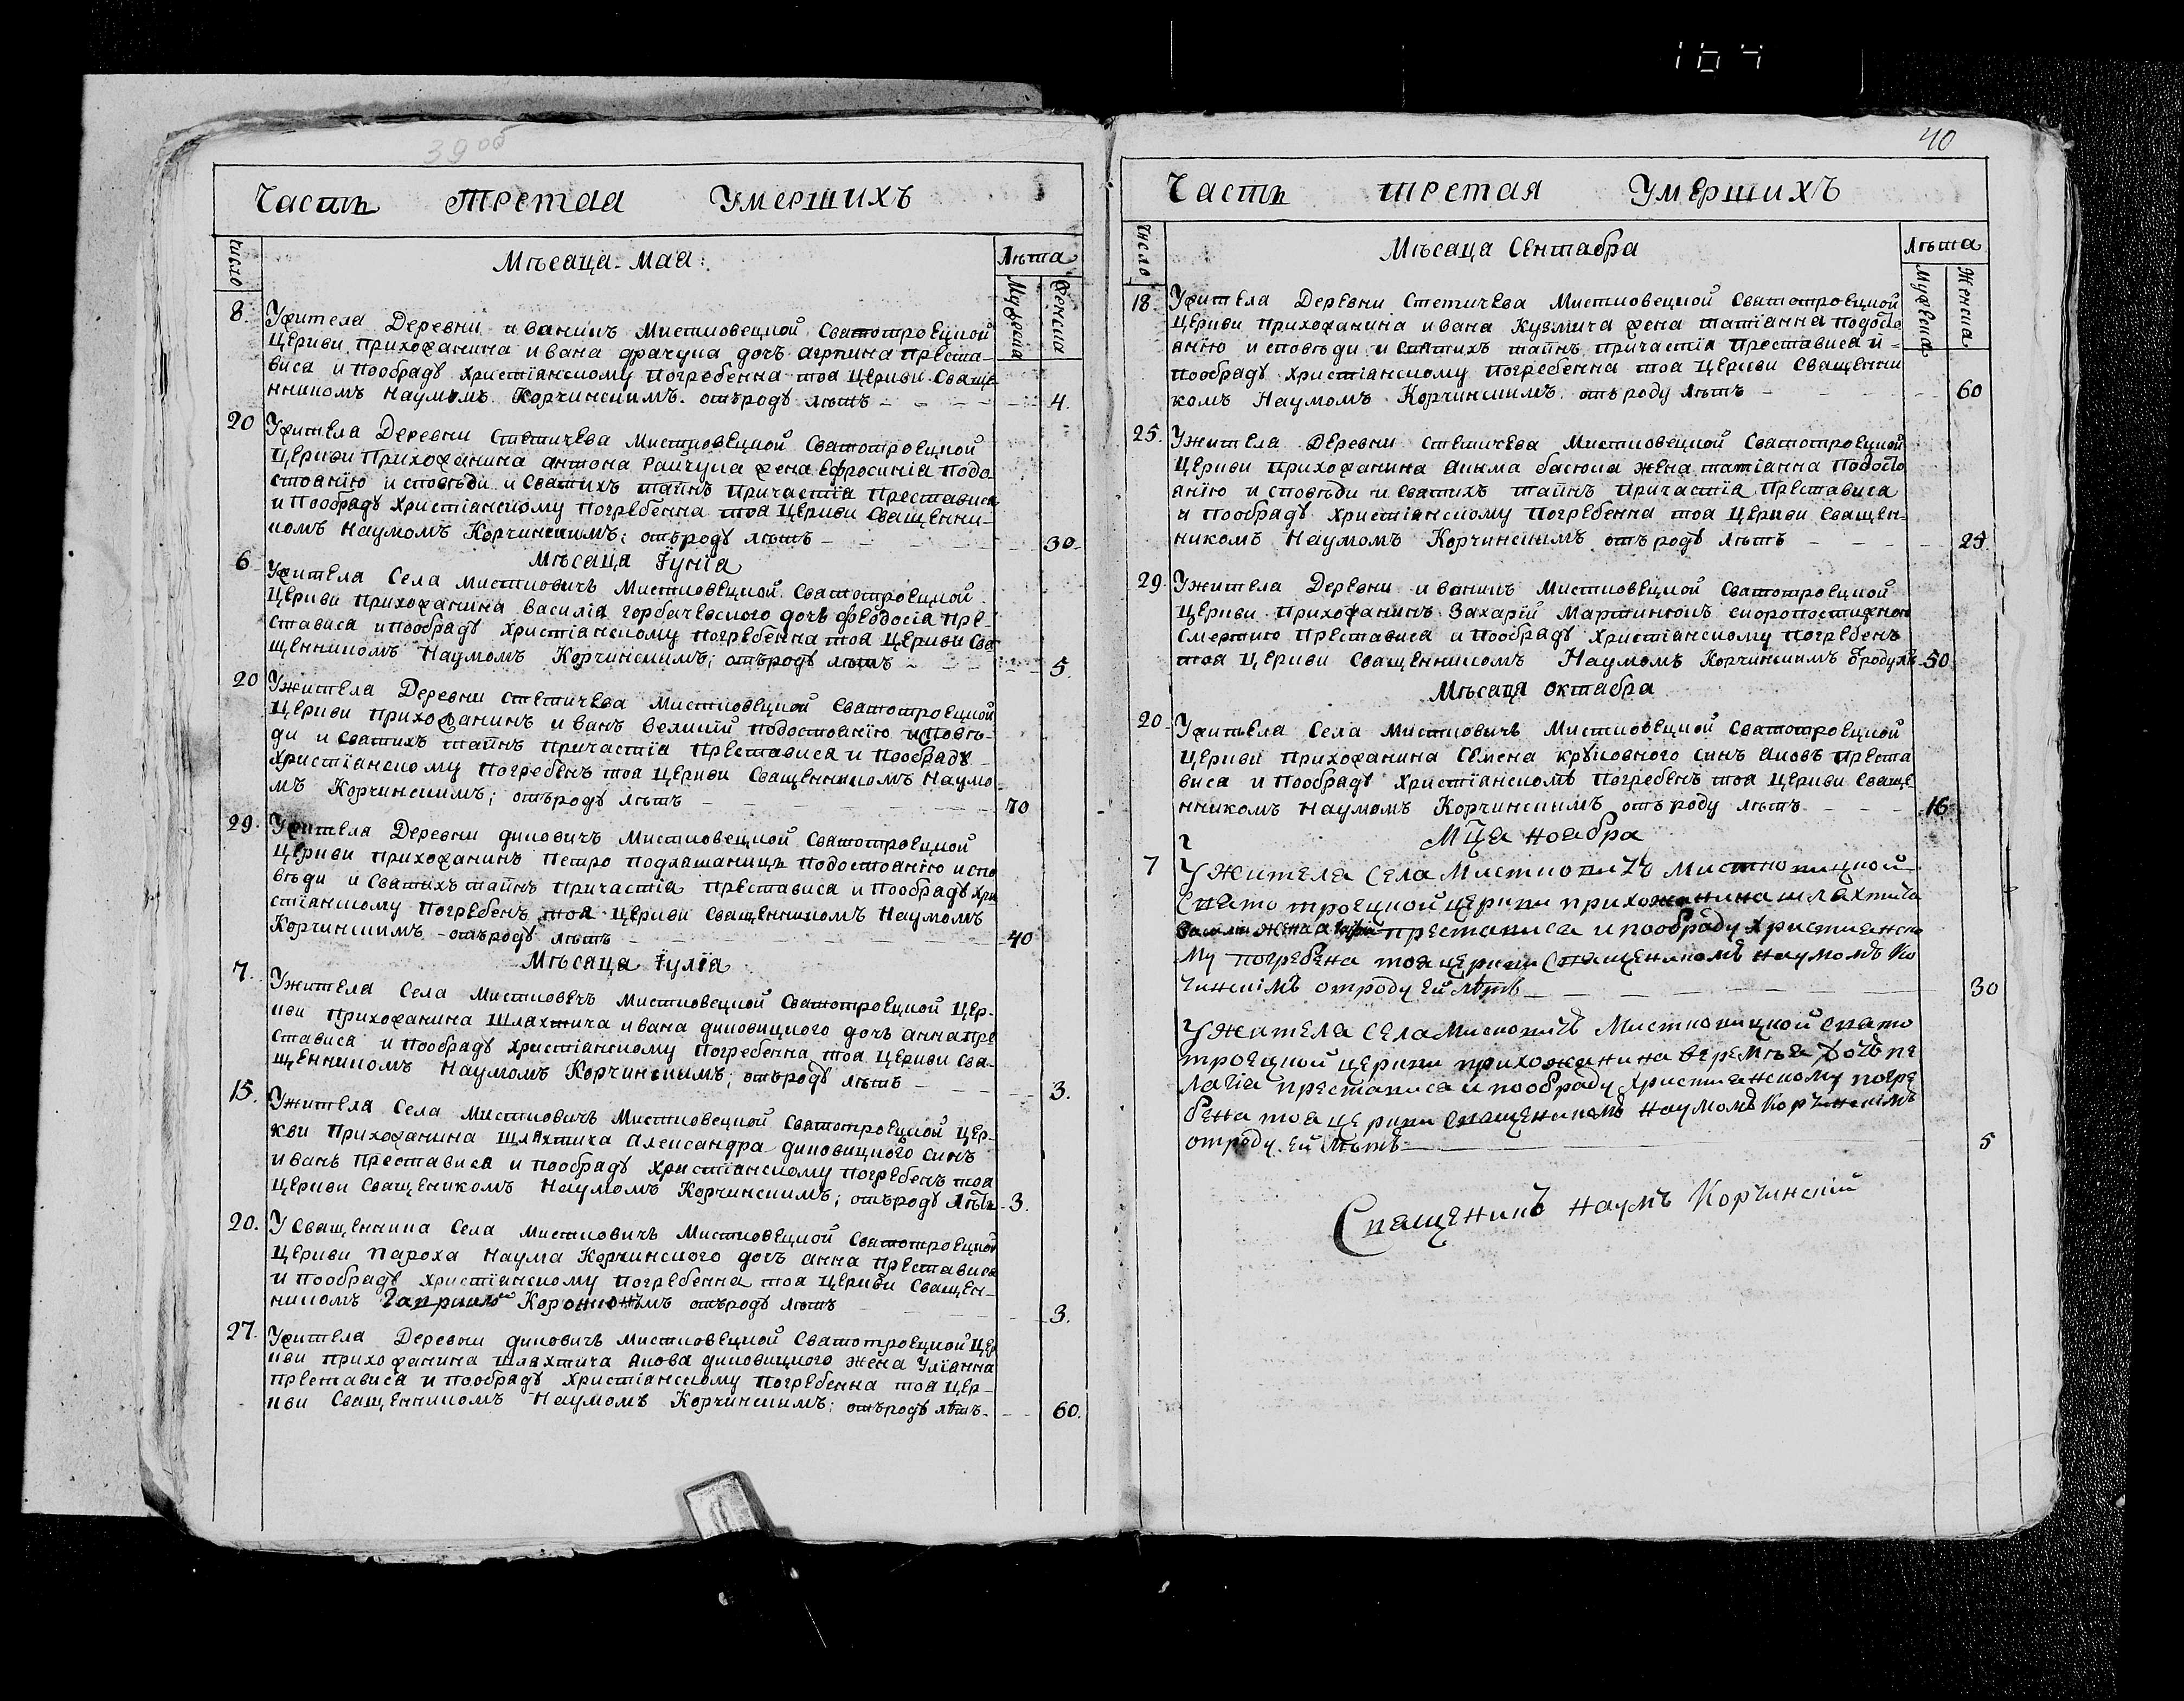 164
39 об
Часть Третаа Умершихъ
Число
Мѣсаца Маа:
Лѣта
Мужеска
Женска
8. Ужителя Деревни иваникъ Мистковецкой Сватотроецкой
Церкви прихожанина ивана драчука дочъ агрпина преста-
виса и пообраду христіанскому погребенна тоа Церкви Сваще
нникомъ Наумомъ Корчинскимъ. отъроду лѣтъ 4.
20 Ужителя Деревни Стетичева Мистковецкой Сватотроецкой
Церкви Прихожанина антона Райчука жена Ефросиніа подо
стоанію исповѣди и Сватихъ тайнъ Причастіа Престависа
и Пообраду Христіанскому погребенна тоа Церкви Сващенни-
комъ Наумомъ Корчинскимъ; отъроду лѣтъ 30
Мѣсаца Іуніа
6 Ужителя Села мистковичъ Мистковецкой Сватотроецкой
Церкви прихожанина василіа горбачевского дочъ феодосіа пре-
стависа и пообраду христіанскому погребенна тоа Церкви Сва
щенникомъ Наумомъ Корчинскимъ; отъроду лѣтъ 5.
20 Ужителя Деревни стетичева мистковецкой Сватотроецкой
Церкви прихожанинъ иванъ великій подостоанію исповѣ-
ди и сватихъ тайнъ Причастіа престависа и Пообраду
Христіанскому погребенъ тоа Церкви Сващенникомъ Наумо
мъ Корчинскимъ; отъроду лѣтъ 70
29. Ужителя Деревни диковичъ Мистковецкой Сватотроецкой
Церкви прихожанинъ Петро подлашаницъ подостоанію испо
вѣди и Сватихъ тайнъ причастіа престависа и пообраду хри
стіанскому погребенъ тоа Церкви Сващенникомъ Наумомъ
Корчинскимъ отъроду лѣтъ 40
Мѣсаца Іуліа
7. Ужителя Села Мистковечъ Мистковецкой Сватотроецкой Цер-
кви прихожанина шлахтича ивана диковицкого дочъ анна пре
стависа и пообраду христіанскому погребенна тоа Церкви Сва-
щенникомъ Наумомъ Корчинскимъ; отъроду лѣтъ 3.
15. Ужителя Села Мистковичъ Мистковецкой Сватотроецкой Цер-
кви Прихожанина шляхтиха Александра диковицкого синъ
иванъ престависа и пообраду христіанскому погребенъ тоа
Церкви Сващеникомъ Наумомъ Корчинскимъ; отъроду лѣтъ 3.
20. У Сващенника Села мистковичъ Мистковецкой Сватотроецкой
Церкви Пароха Наума Корчинского дочъ анна престависа
и пообраду христіанскому погребенна тоа Церкви Сващен-
никомъ отъроду лѣтъ 3.
27. Ужителя Деревни диковичъ мистковецкой Сватотроецкой Цер
кви прихожанина шлахтича акова диковицкого жена уліанна
престависа и пообраду христіанскому погребенна тоа Цер-
кви Сващенникомъ Наумомъ Корчинскимъ; отъроду лѣтъ 60.
40
Часть третая Умершихъ
Число
Мѣсаца Сентабра
Лѣта
Мужеска
Женска
18. Ужителя Деревни Стетичева Мистковецкой Сватотроецкой
Церкви прихожанина ивана Кузмича жена татіанна подосто
анію исповѣди и сватихъ тайнъ причастіа престависа и
пообраду христіанскому погребенна тоа Церкви Сващенни
комъ Наумомъ Корчинскимъ отъ роду лѣтъ 60
25. Ужителя Деревни стетичева Мистковецкой Сватотроецкой
Церкви прихожанина акима басюка жена татіанна подосто
анію исповѣди и сватихъ тайнъ причастіа престависа
и пообраду христіанскому погребенна тоа Церкви Сващен-
никомъ Наумомъ Корчинскимъ отъ роду лѣтъ
29. Ужителя Деревни иваникъ Мистковецкой Сватотроецкой
Церкви прихожанинъ Захарій Мартинюкъ скоропостижною
смертию престависа и пообраду христіанскому погребенъ
тоа Церкви Сващенникомъ Наумомъ Корчинскимъ ѿроду лѣ 50
Мѣсаця октабра
20 Ужителя Села Мистковичъ Мистковецкой Сватотроецкой
Церкви прихожанина Семена круковного синъ аковъ преста
виса и пообраду христіанскомъ погребенъ тоа Церкви Сваще
нникомъ Наумомъ Корчинскимъ отъ роду лѣтъ 16
Мца ноабра
7 Ужителя Села Мистковичъ Мистковицкой
Свато троецкой церкви прихожанина шлахтича
жена престависа и пообраду христианско
му погребена тоя церкви Сващеникомъ наумомъ Ко
чинскімъ отроду ей лѣтъ 30
Ужителя села Мисковичъ Мистковицкой свато
троецкой церкви прихожанина веремѣа дочъ пе
лагіа престависа и пообраду христианскому погре
бена тоя церкви сващеникомъ наумомъ Корчинскімъ
отроду ей лѣтъ 5
Сващеникъ наумъ Корчинскій